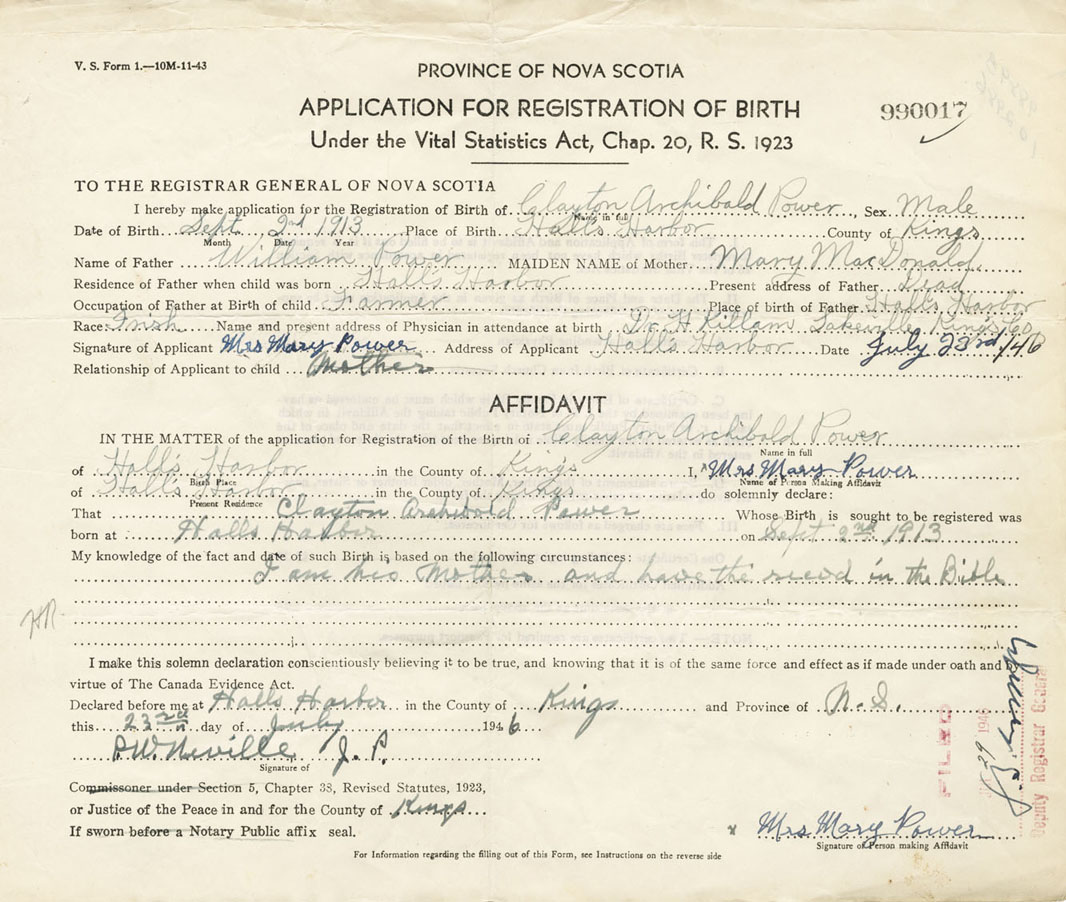 V. S. Form 1.—10M-11-43
PROVINCE OF NOVA SCOTIA
APPLICATION FOR REGISTRATION OF BIRTH
990017
Under the Vital Statistics Act, Chap. 20, R. S. 1923
TO THE REGISTRAR GENERAL OF NOVA SCOTIA
I hereby make application for the Registration of Birth of Clayton Archibald Power, Sex Male
Name in full
Date of Birth Sept 2nd 1913 Place of Birth Halls Harbor County of Kings
Month Date Year
Name of Father William Power MAIDEN NAME of Mother Mary MacDonald
Residence of Father when child was born Halls Harbor Present address of Father Dead
Occupation of Father at Birth of child Farmer Place of birth of Father Halls Harbor
Race Irish Name and present address of Physician in attendance at birth Dr. H Killam Lakeville Kings Co
Signature of Applicant Mrs Mary Power Address of Applicant Halls Harbor Date July 23rd/46
Relationship of Applicant to child Mother
AFFIDAVIT
IN THE MATTER of the application for Registration of the Birth of Clayton Archibald Power
Name in full
of Halls Harbor in the County of Kings I, Mrs Mary Power
Birth Place Name of Person Making Affidavit
of Halls Harbor in the County of Kings do solemnly declare:
Present Residence
That Clayton Archibald Power Whose Birth is sought to be registered was
born at Halls Harbor on Sept 2nd 1913
My knowledge of the fact and date of such Birth is based on the following circumstances:
I am his Mother and have the record in the Bible
HR
I make this solemn declaration conscientiously believing it to be true, and knowing that it is of the same force and effect as if made under oath and by
virtue of The Canada Evidence Act.
Declared before me at Halls Harbor in the County of Kings and Province of N.S.
this 23rd day of July 1946
P.W. Neville J. P.
Signature of
Commissoner under Section 5, Chapter 38, Revised Statutes, 1923,
or Justice of the Peace in and for the County of Kings
If sworn before a Notary Public affix seal.
Mrs Mary Power
Signature of Person making Affidavit
For Information regarding the filling out of this Form, see Instructions on the reverse side
FILED
1946
Deputy Registrar General